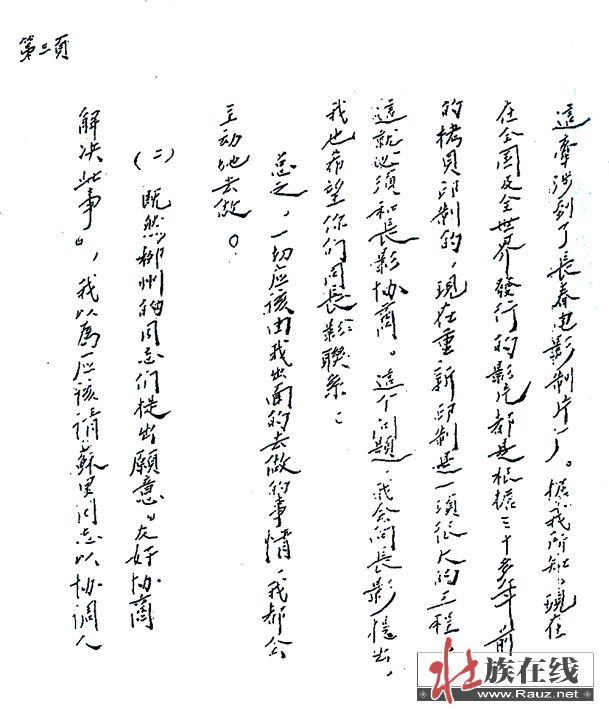 第三頁
這牽涉到了長春电影制片厂。據我所知,現在
在全国及全世界發行的影片都是根據三十多年前
的拷貝印制的,現在重新印制是一項很大的工程,
這就必須和長影协商。這个问題,我会向長影提出,
我也希望你们同長影聯系;
总之,一切应该由我出面的去做的事情,我都会
主动地去做。
(二) 既然柳州的同志们提出願意“友好协商
解决此事”,我以為应该請蘇里同志以协调人
壮族在线
www.Rauz.net